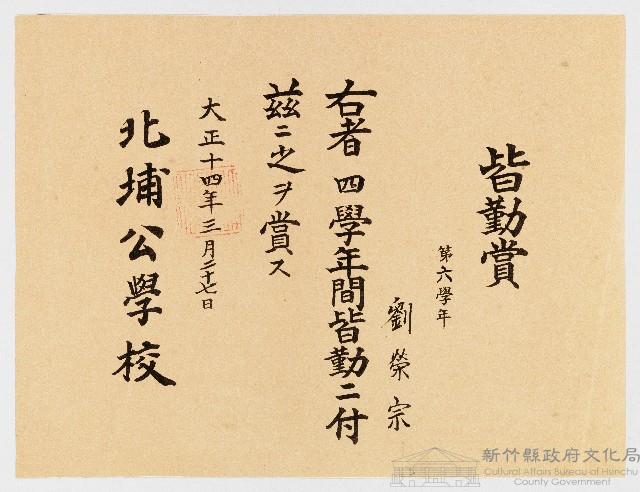 皆勤賞
第六學年
劉榮宗
右者四學年間皆勤ニ付
茲ニ之ヲ賞ス
大正十四年三月二十七日
北埔公學校
新竹縣政府文化局
Cultural Affairs Bureau of Hsinchu
County Government